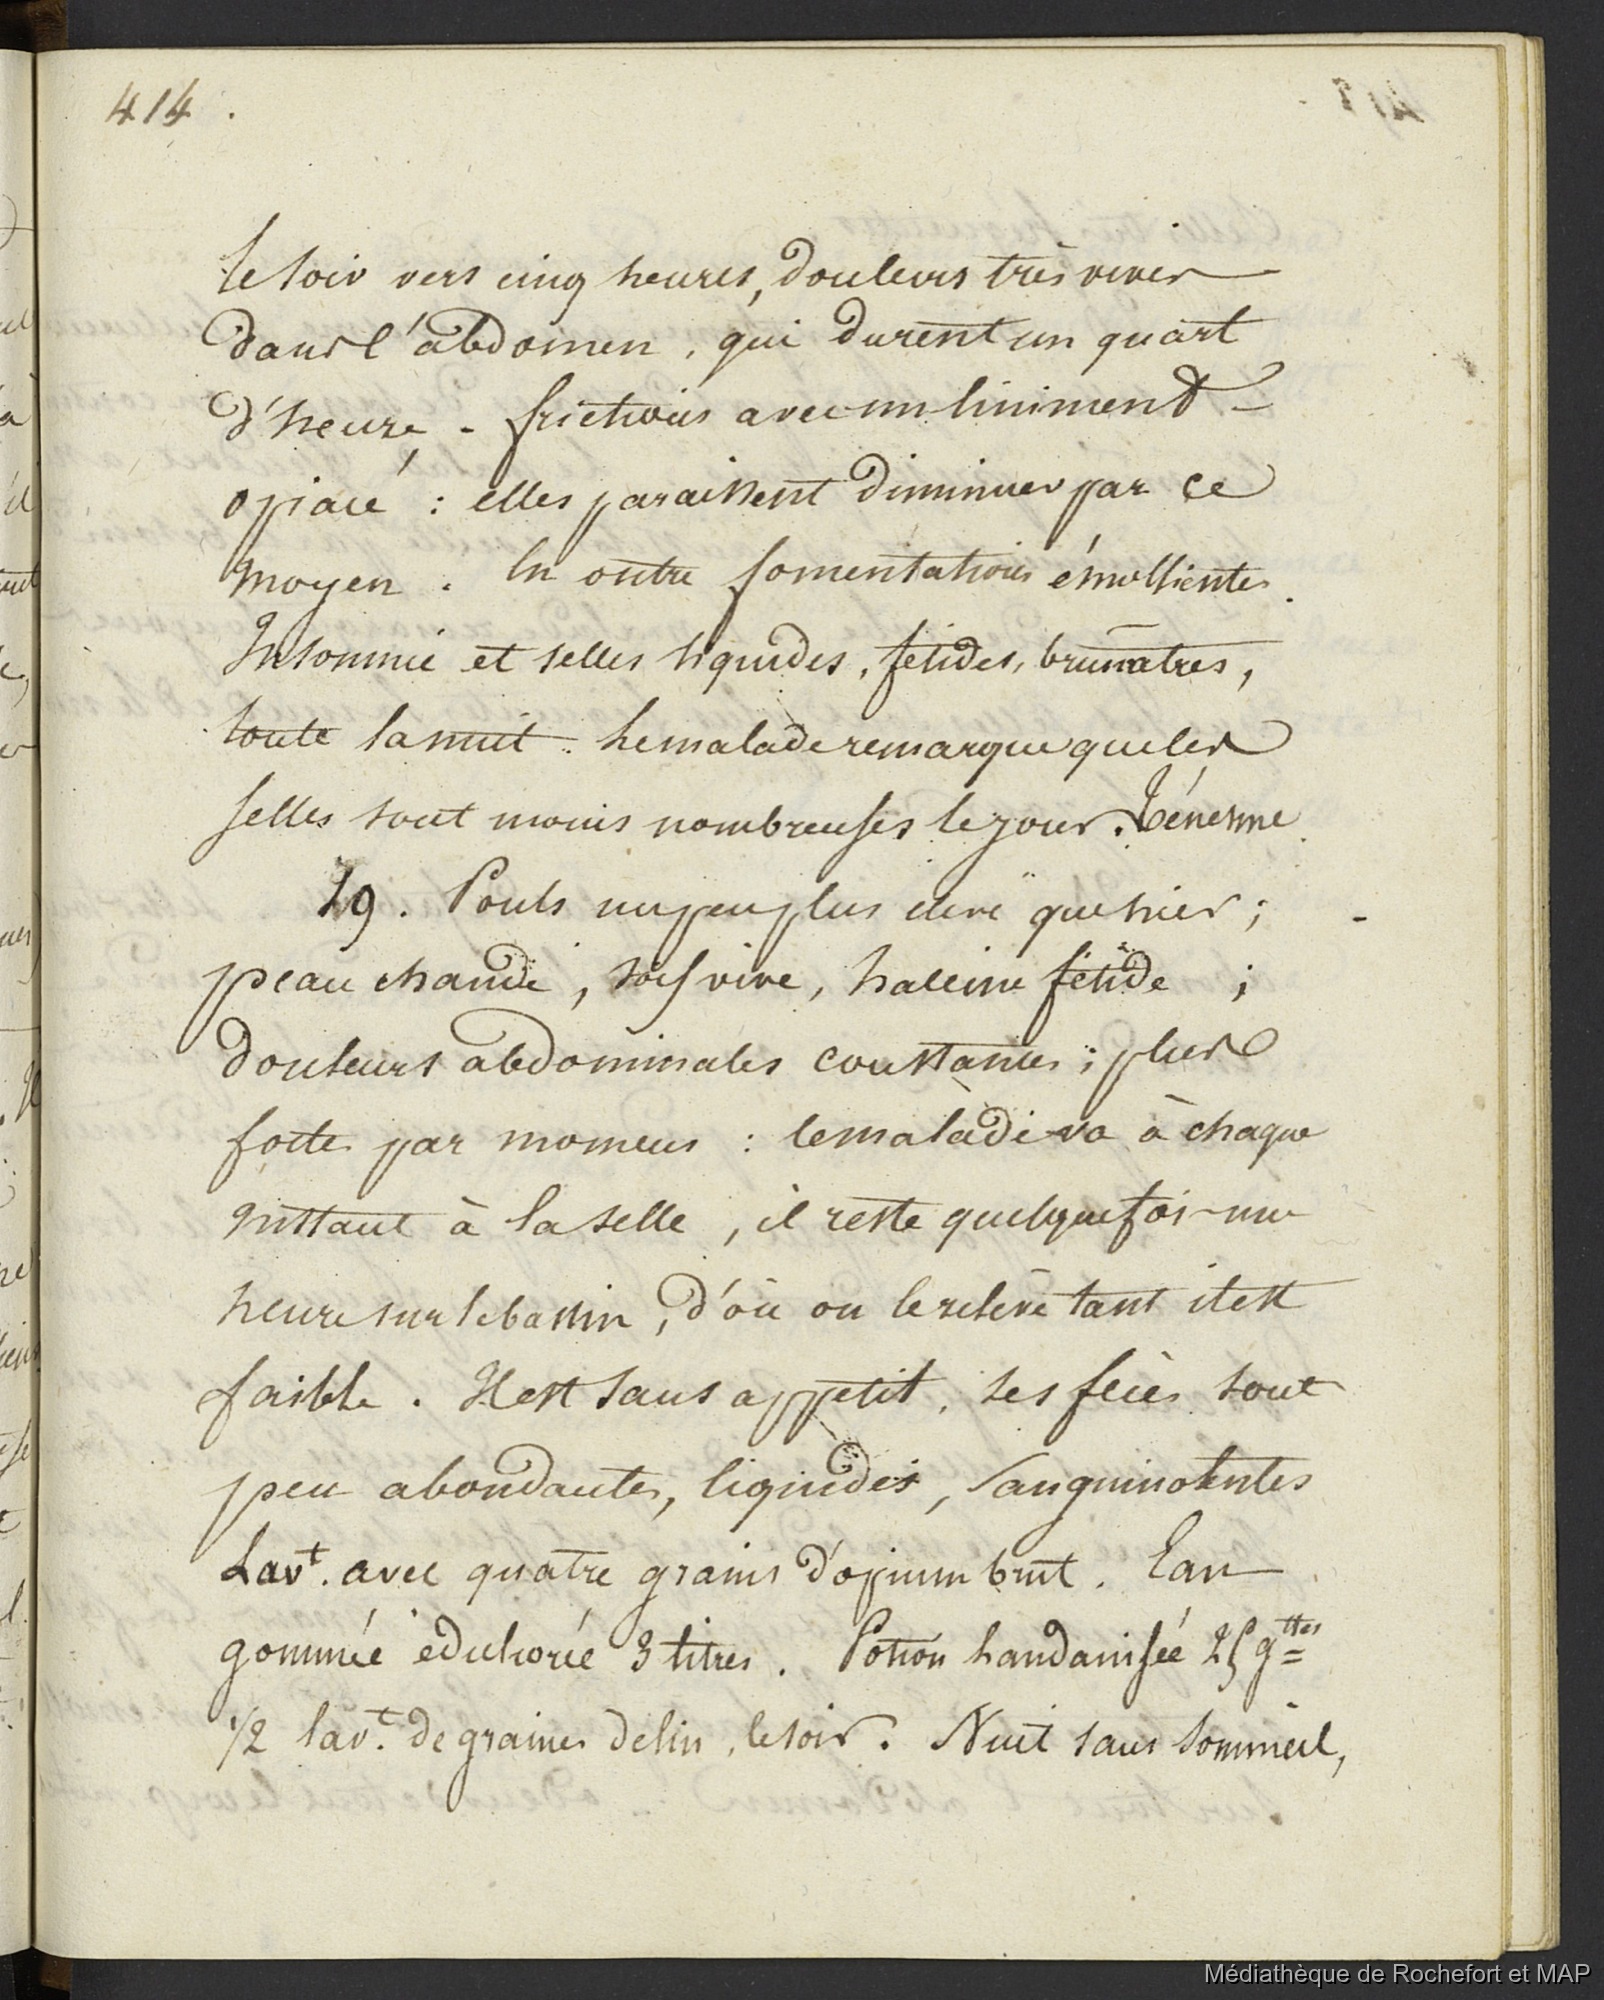 414.
le soir vers cinq heures, douleurs très vives
dans l'abdomen, qui durent un quart
d'heure, - frictions avec un liniment -
opiacé : elles paraissent diminuer par ce
moyen. En outre fomentations émollientes.
Insomnie et selles liquides, fétides, brunâtres,
toute la nuit. Le malade remarque que les
selles sont moins nombreuses le jour. Ténesme
19. Pouls un peu plus élevé que hier ;
peau chaude, soif vive, haleine fétide ;
douleurs abdominales constantes ; plus
fortes par momens : le malade va à chaque
instant à la selle, il reste quelquefois une
heure sur le bassin, d'où on le relève tant il est
faible. Il est sans appetit, ses fèces sont
peu abondantes, liquides, sanguinolentes
Lavt. avec quatre grains d'opium brut. Eau
gommée édulcorée 3 litres. Potion laudanisée 25 gttes
1/2 lavt. de graines de lin, le soir. Nuit sans sommeil,
Médiathèque de Rochefort et MAP